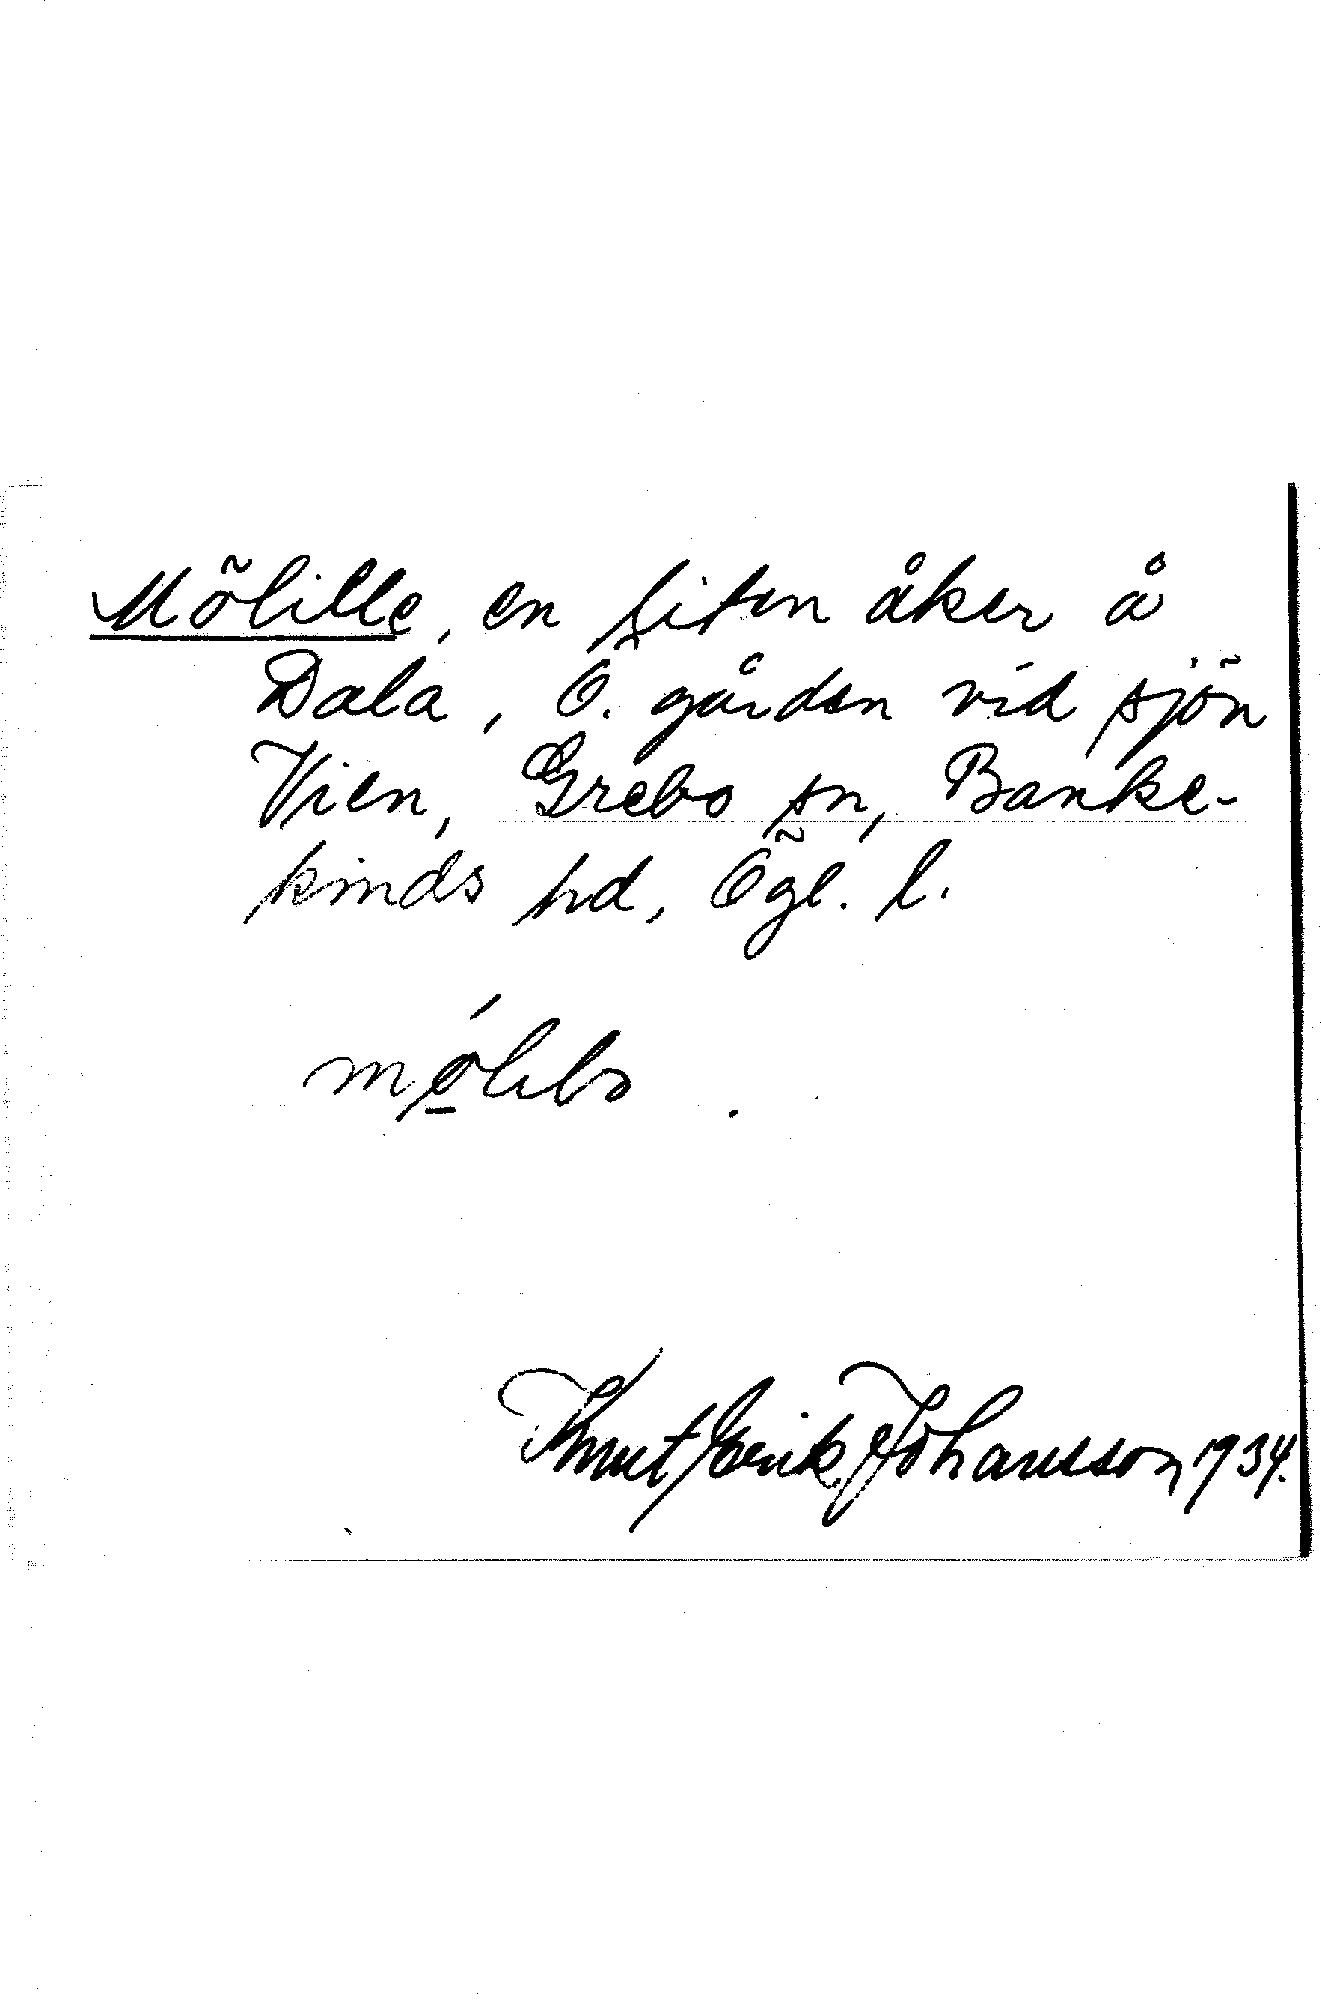 Mölille, en liten åker å
Dala, Ö. gården vid sjön
Vien, Grebo sn, Banke-
kinds hd, Ögl. l.
Knut Erik Johansson 1934.